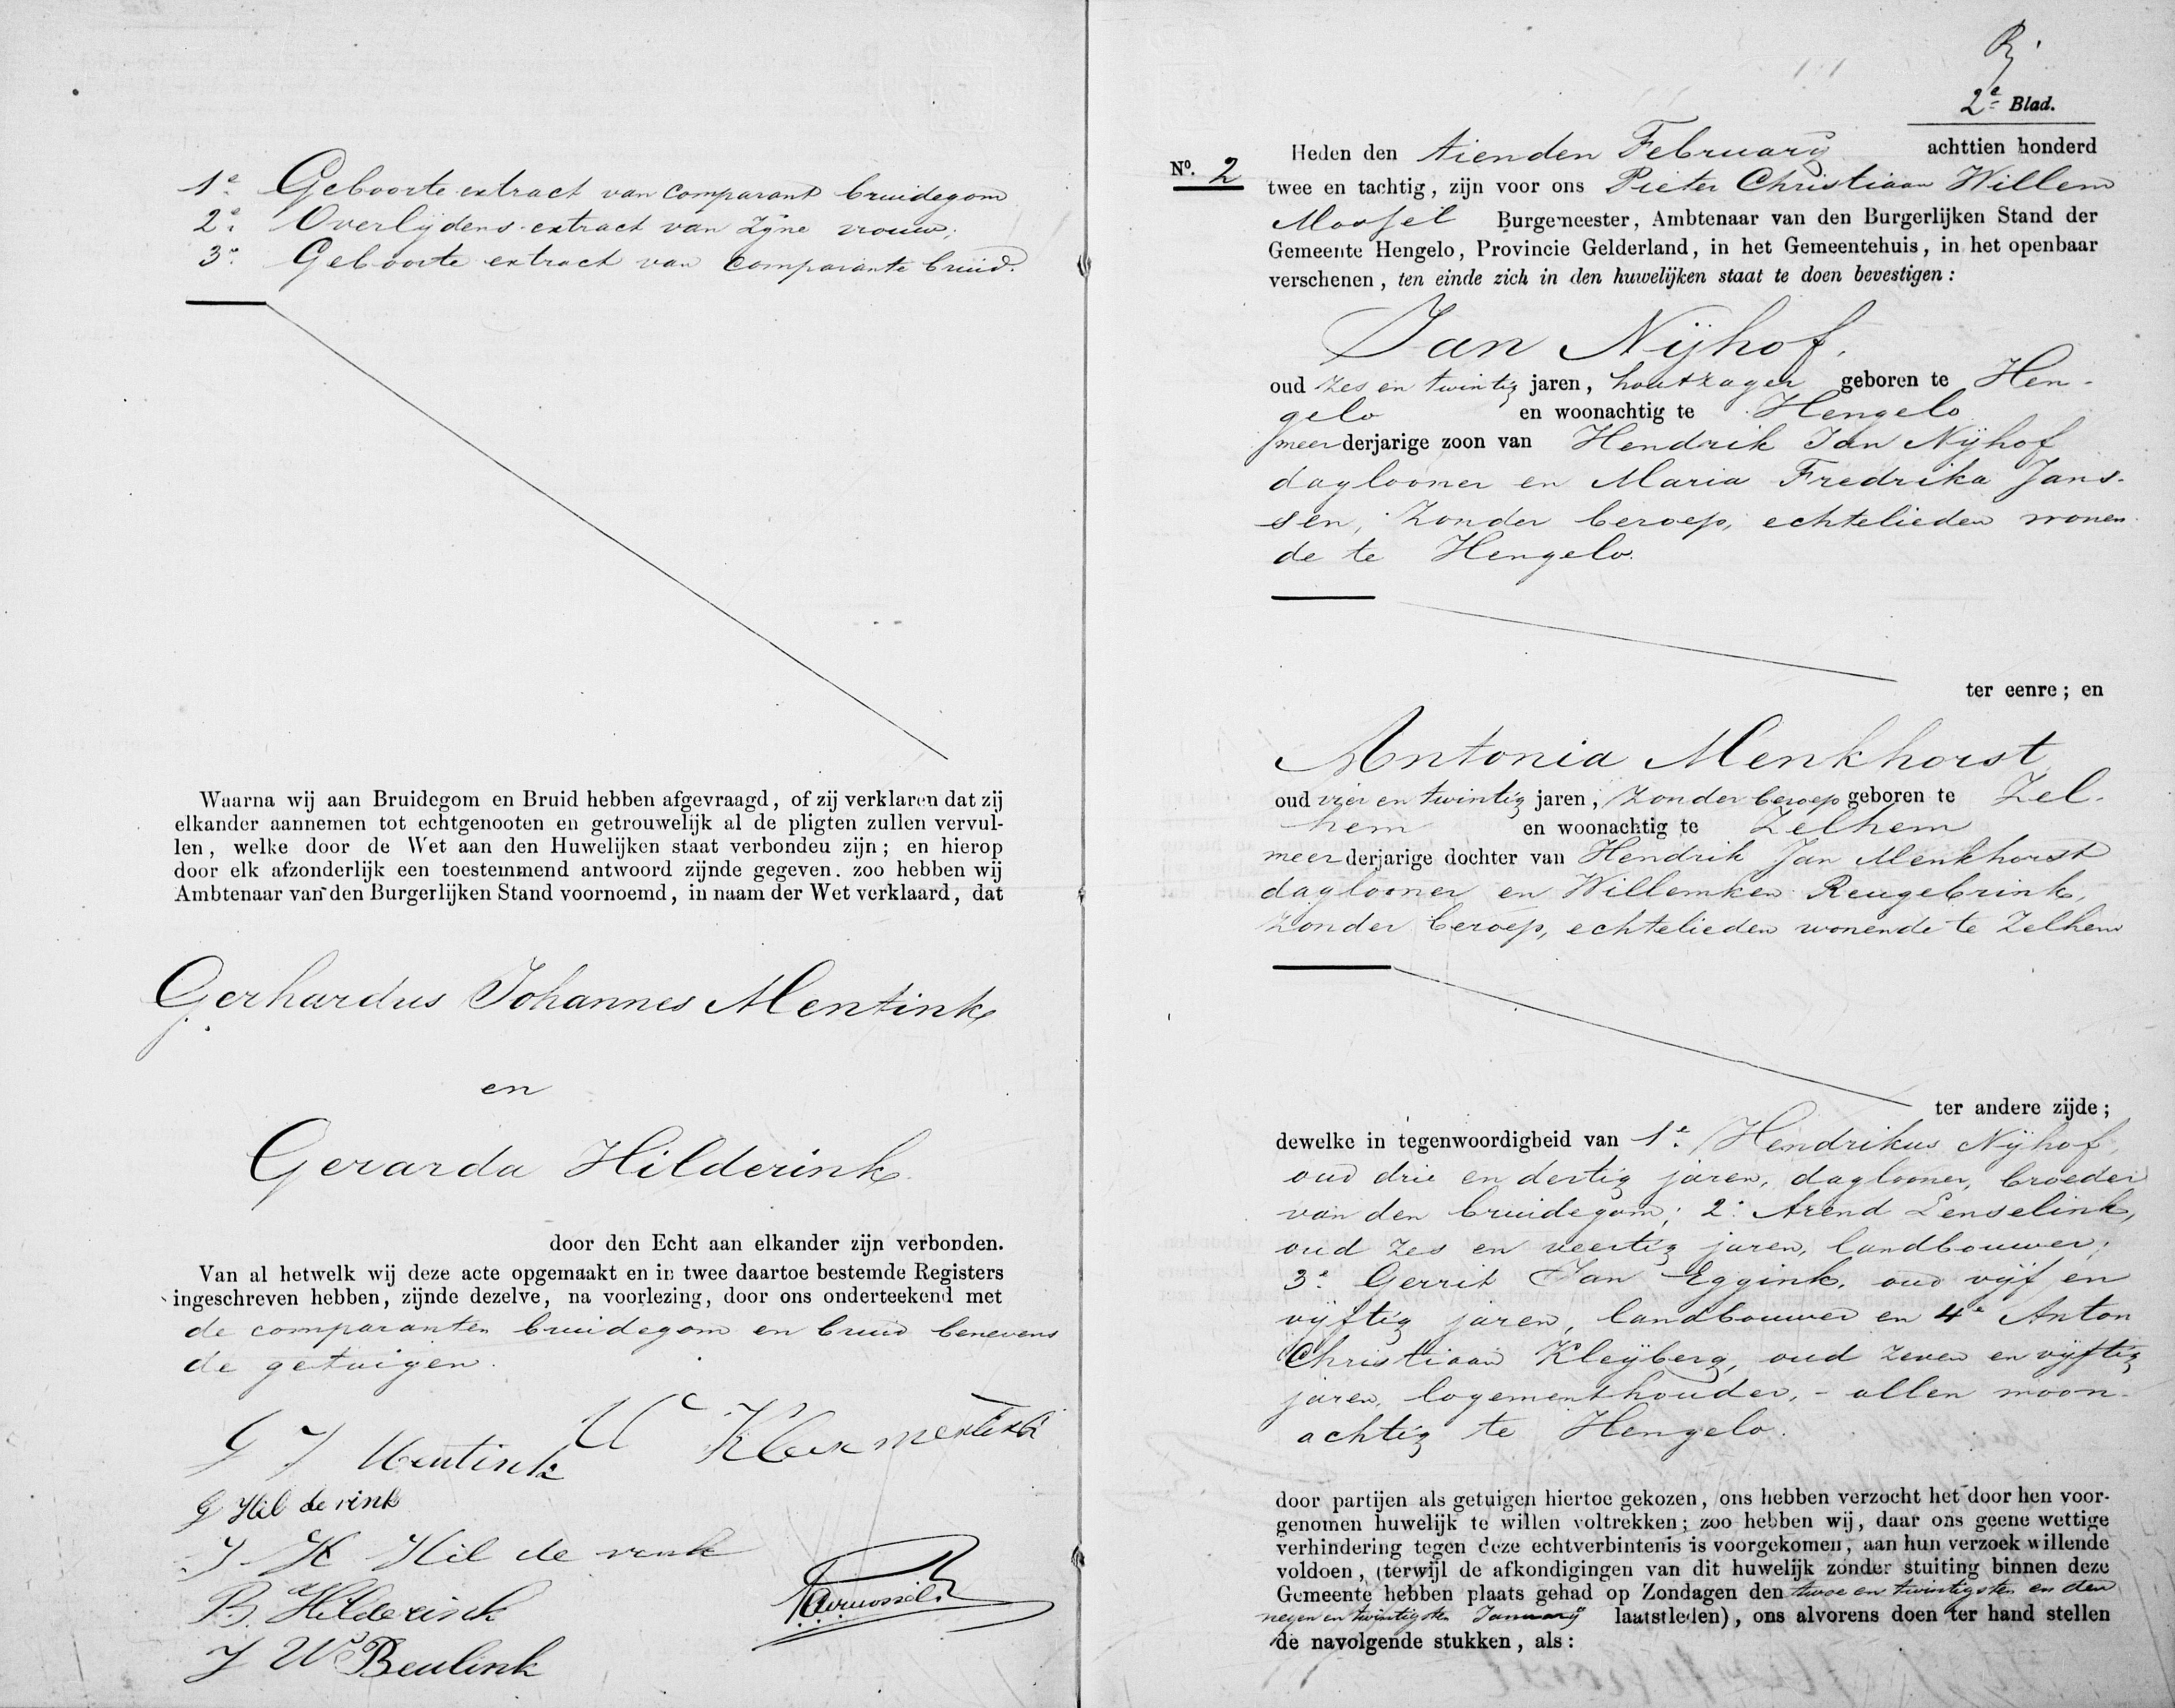 1e. Geboorte extract van comparant bruidegom
2e. Overlijdens extract van zijne vrouw;
3e. Geboorte extract van comparante bruid.
Waarna wij aan Bruidegom en Bruid hebben afgevraagd, of zij verklaren dat zij
elkander aannemen tot echtgenooten en getrouwelijk al de pligten zullen vervul-
len, welke door de Wet aan den Huwelijken staat verbonden zijn; en hierop
door elk afzonderlijk een toestemmend antwoord zijnde gegeven. zoo hebben wij
Ambtenaar van den Burgerlijken Stand voornoemd, in naam der Wet verklaard, dat
Gerhardus Johannes Mentink
en
Gerarda Hilderink
door den Echt aan elkander zijn verbonden.
Van al hetwelk wij deze acte opgemaakt en in twee daartoe bestemde Registers
ingeschreven hebben, zijnde dezelve, na voorlezing, door ons onderteekend met
de comparanten bruidegom en bruid benevens
de getuigen.
G J Mentink
G Hilderink
J H Hilderink
B. Hilderink
J W Beulink
2e Blad.
No. 2
Heden den tienden February achttien honderd
twee en tachtig, zijn voor ons Pieter Christiaan Willem
Mossel Burgemeester, Ambtenaar van den Burgerlijken Stand der
Gemeente Hengelo, Provincie Gelderland, in het Gemeentehuis, in het openbaar
verschenen, ten einde zich in den huwelijken staat te doen bevestigen:
Jan Nijhof,
oud zes en twintig jaren, houtzager geboren te Hen-
gelo en woonachtig te Hengelo
meerderjarige zoon van Hendrik Jan Nijhof
daglooner en Maria Fredrika Jans-
sen, zonder beroep, echtelieden wonen-
de te Hengelo.
ter eenre; en
Antonia Menkhorst
oud vier en twintig jaren, zonder beroep geboren te Zel-
hem en woonachtig te Zelhem
meerderjarige dochter van Hendrik Jan Menkhorst
daglooner en Willemken Reugebrink,
zonder beroep, echtelieden wonende te Zelhem
ter andere zijde;
dewelke in tegenwoordigheid van 1e. Hendrikus Nijhof,
oud drie en dertig jaren, daglooner, broeder
van den bruidegom; 2e. Arend Lenselink,
oud zes en veertig jaren, landbouwer;
3e. Gerrit Jan Eggink, oud vijf en
vijftig jaren, landbouwer en 4e Anton
Christiaan Kleyberg, oud zeven en vijftig
jaren, logementhouder, - allen woon-
achtig te Hengelo.
door partijen als getuigen hiertoe gekozen, ons hebben verzocht het door hen voor-
genomen huwelijk te willen voltrekken; zoo hebben wij, daar ons geene wettige
verhindering tegen deze echtverbintenis is voorgekomen, aan hun verzoek willende
voldoen, (terwijl de afkondigingen van dit huwelijk zonder stuiting binnen deze
Gemeente hebben plaats gehad op Zondagen den twee en twintigsten en den
negen en twintigsten January laatstleden), ons alvorens doen ter hand stellen
de navolgende stukken, als: